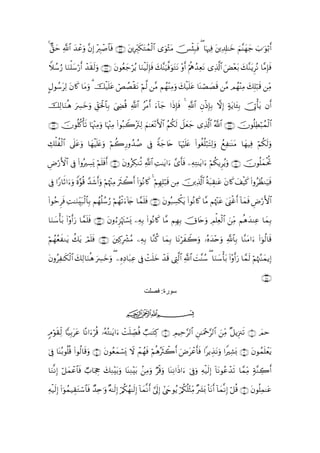 أَبْوَابَ جَهَنَّمَ خَالِدِينَ فِيهَا ۖ فَبِئْسَ مَثْوَى الْمُتَكَبِّرِينَ ﴿٧٦﴾ فَاصْبِرْ إِنَّ وَعْدَ اللَّهِ حَقٌّ ۚ
فَإِمَّا نُرِيَنَّكَ بَعْضَ الَّذِي نَعِدُهُمْ أَوْ نَتَوَفَّيَنَّكَ فَإِلَيْنَا يُرْجَعُونَ ﴿٧٧﴾ وَلَقَدْ أَرْسَلْنَا رُسُلًا
مِنْ قَبْلِكَ مِنْهُمْ مَنْ قَصَصْنَا عَلَيْكَ وَمِنْهُمْ مَنْ لَمْ نَقْصُصْ عَلَيْكَ ۗ وَمَا كَانَ لِرَسُولٍ
أَنْ يَأْتِيَ بِآيَةٍ إِلَّا بِإِذْنِ اللَّهِ ۚ فَإِذَا جَاءَ أَمْرُ اللَّهِ قُضِيَ بِالْحَقِّ وَخَسِرَ هُنَالِكَ
الْمُبْطِلُونَ ﴿٧٨﴾ اللَّهُ الَّذِي جَعَلَ لَكُمُ الْأَنْعَامَ لِتَرْكَبُوا مِنْهَا وَمِنْهَا تَأْكُلُونَ ﴿٧٩﴾
وَلَكُمْ فِيهَا مَنَافِعُ وَلِتَبْلُغُوا عَلَيْهَا حَاجَةً فِي صُدُورِكُمْ وَعَلَيْهَا وَعَلَى الْفُلْكِ
تُحْمَلُونَ ﴿٨٠﴾ وَيُرِيكُمْ آيَاتِهِ فَأَيَّ آيَاتِ اللَّهِ تُنْكِرُونَ ﴿٨١﴾ أَفَلَمْ يَسِيرُوا فِي الْأَرْضِ
فَيَنْظُرُوا كَيْفَ كَانَ عَاقِبَةُ الَّذِينَ مِنْ قَبْلِهِمْ ۚ كَانُوا أَكْثَرَ مِنْهُمْ وَأَشَدَّ قُوَّةً وَآثَارًا فِي
الْأَرْضِ فَمَا أَغْنَىٰ عَنْهُمْ مَا كَانُوا يَكْسِبُونَ ﴿٨٢﴾ فَلَمَّا جَاءَتْهُمْ رُسُلُهُمْ بِالْبَيِّنَاتِ فَرِحُوا
بِمَا عِنْدَهُمْ مِنَ الْعِلْمِ وَحَاقَ بِهِمْ مَا كَانُوا بِهِ يَسْتَهْزِئُونَ ﴿٨٣﴾ فَلَمَّا رَأَوْا بَأْسَنَا
قَالُوا آمَنَّا بِاللَّهِ وَحْدَهُ وَكَفَرْنَا بِمَا كُنَّا بِهِ مُشْرِكِينَ ﴿٨٤﴾ فَلَمْ يَكُ يَنْفَعُهُمْ
إِيمَانُهُمْ لَمَّا رَأَوْا بَأْسَنَا ۖ سُنَّتَ اللَّهِ الَّتِي قَدْ خَلَتْ فِي عِبَادِهِ ۖ وَخَسِرَ هُنَالِكَ الْكَافِرُونَ
﴿٨٥﴾
سورة: فصلت
بِسْمِ اللَّهِ الرَّحْمَٰنِ الرَّحِيمِ
حم ﴿١﴾ تَنْزِيلٌ مِنَ الرَّحْمَٰنِ الرَّحِيمِ ﴿٢﴾ كِتَابٌ فُصِّلَتْ آيَاتُهُ قُرْآنًا عَرَبِيًّا لِقَوْمٍ
يَعْلَمُونَ ﴿٣﴾ بَشِيرًا وَنَذِيرًا فَأَعْرَضَ أَكْثَرُهُمْ فَهُمْ لَا يَسْمَعُونَ ﴿٤﴾ وَقَالُوا قُلُوبُنَا فِي
أَكِنَّةٍ مِمَّا تَدْعُونَا إِلَيْهِ وَفِي آذَانِنَا وَقْرٌ وَمِنْ بَيْنِنَا وَبَيْنِكَ حِجَابٌ فَاعْمَلْ إِنَّنَا
عَامِلُونَ ﴿٥﴾ قُلْ إِنَّمَا أَنَا بَشَرٌ مِثْلُكُمْ يُوحَىٰ إِلَيَّ أَنَّمَا إِلَٰهُكُمْ إِلَٰهٌ وَاحِدٌ فَاسْتَقِيمُوا إِلَيْهِ